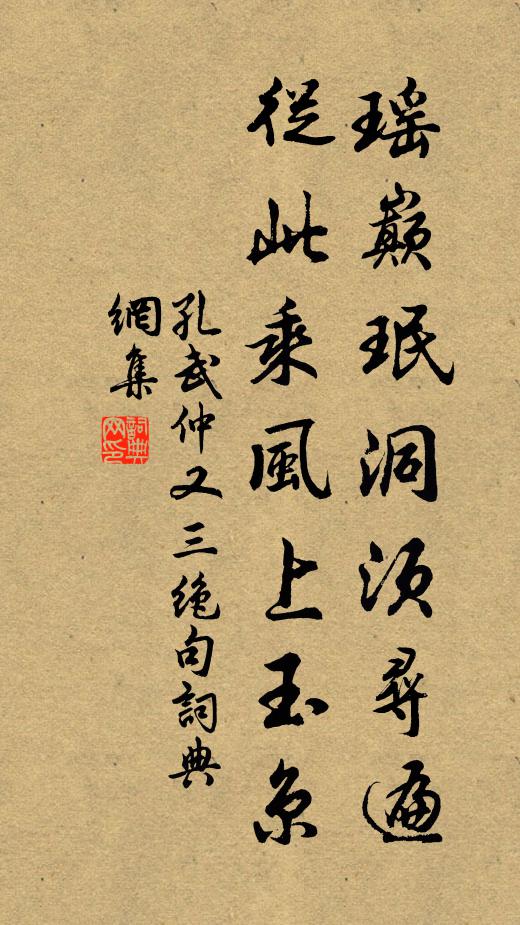 瑤巔珉洞須尋遍
從此乘風上玉京
孔武仲又三絶句詞典
網集
詞典
网印